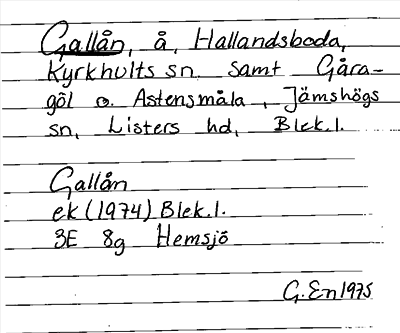 Gallån, å, Hallandsboda,
Kyrkhults sn. samt Gåra-
göl o. Astensmåla, Jämshögs
sn, Listers hd, Blek.l.
Gallån
ek (1974) Blek.l.
3E 8g Hemsjö
G.En 1975